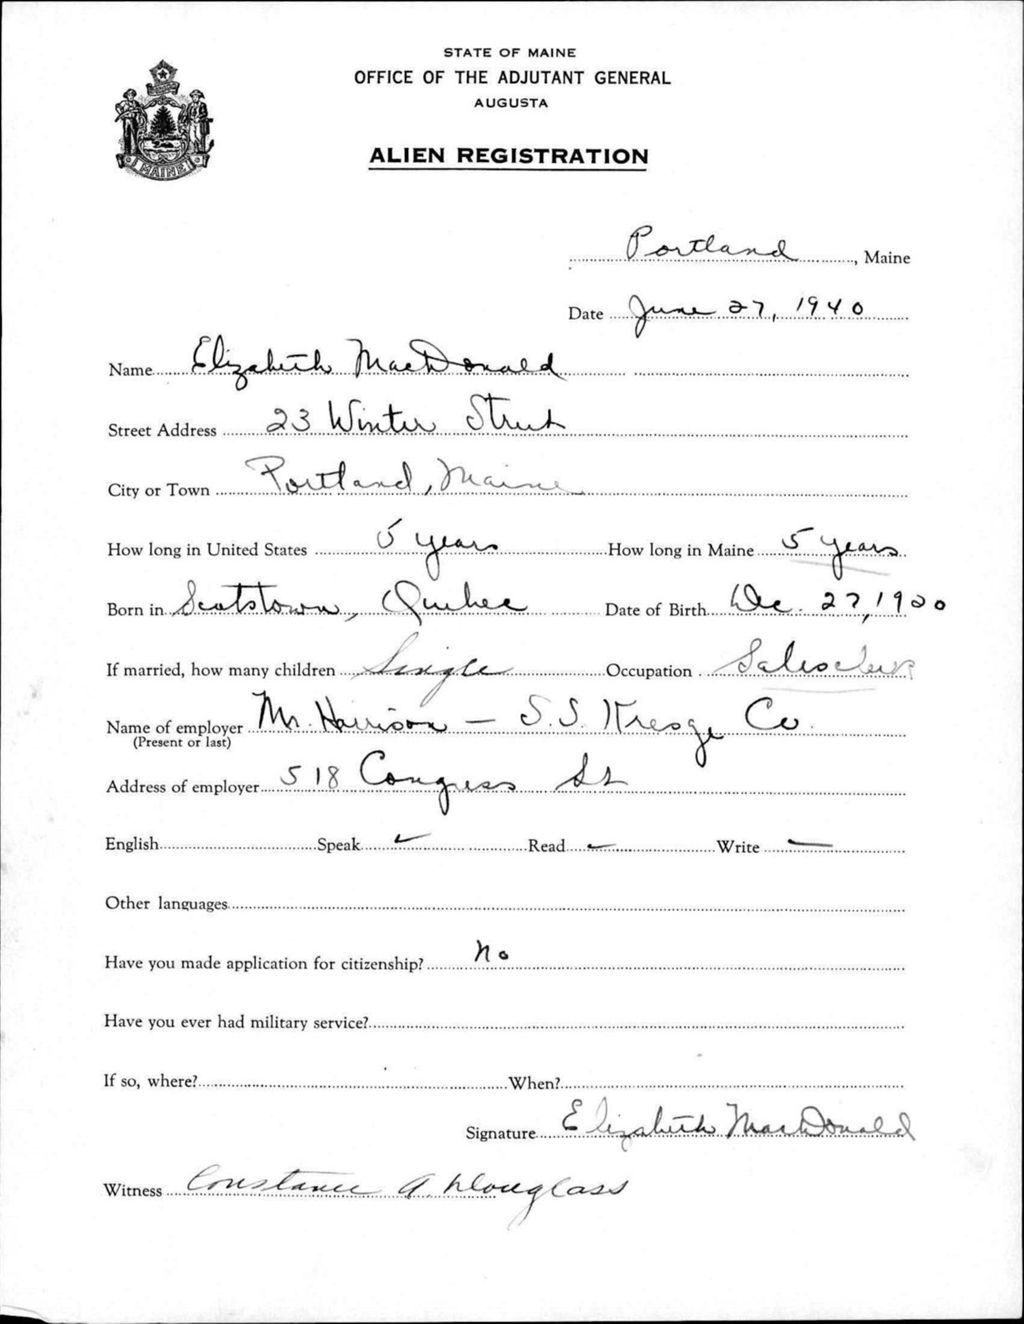 STATE OF MAINE
OFFICE OF THE ADJUTANT GENERAL
AUGUSTA
ALIEN REGISTRATION
MAINE
Portland, Maine
Date June 27, 1940
Name Elizabeth MacDonald
Street Address 23 Winter Street
City or Town Portland, Maine
How long in United States 5 years How long in Maine 5 years
Born in Scotstown, Quebec Date of Birth Dec. 27, 1920
If married, how many children Single Occupation Salesclerk
Name of employer Mr. Harrison - S.S. Kresge Co.
(Present or last)
Address of employer 518 Congress St
English Speak ✓ Read ✓ Write —
Other languages
Have you made application for citizenship? No
Have you ever had military service?
If so, where? When?
Signature Elizabeth MacDonald
Witness Constance A. Douglass